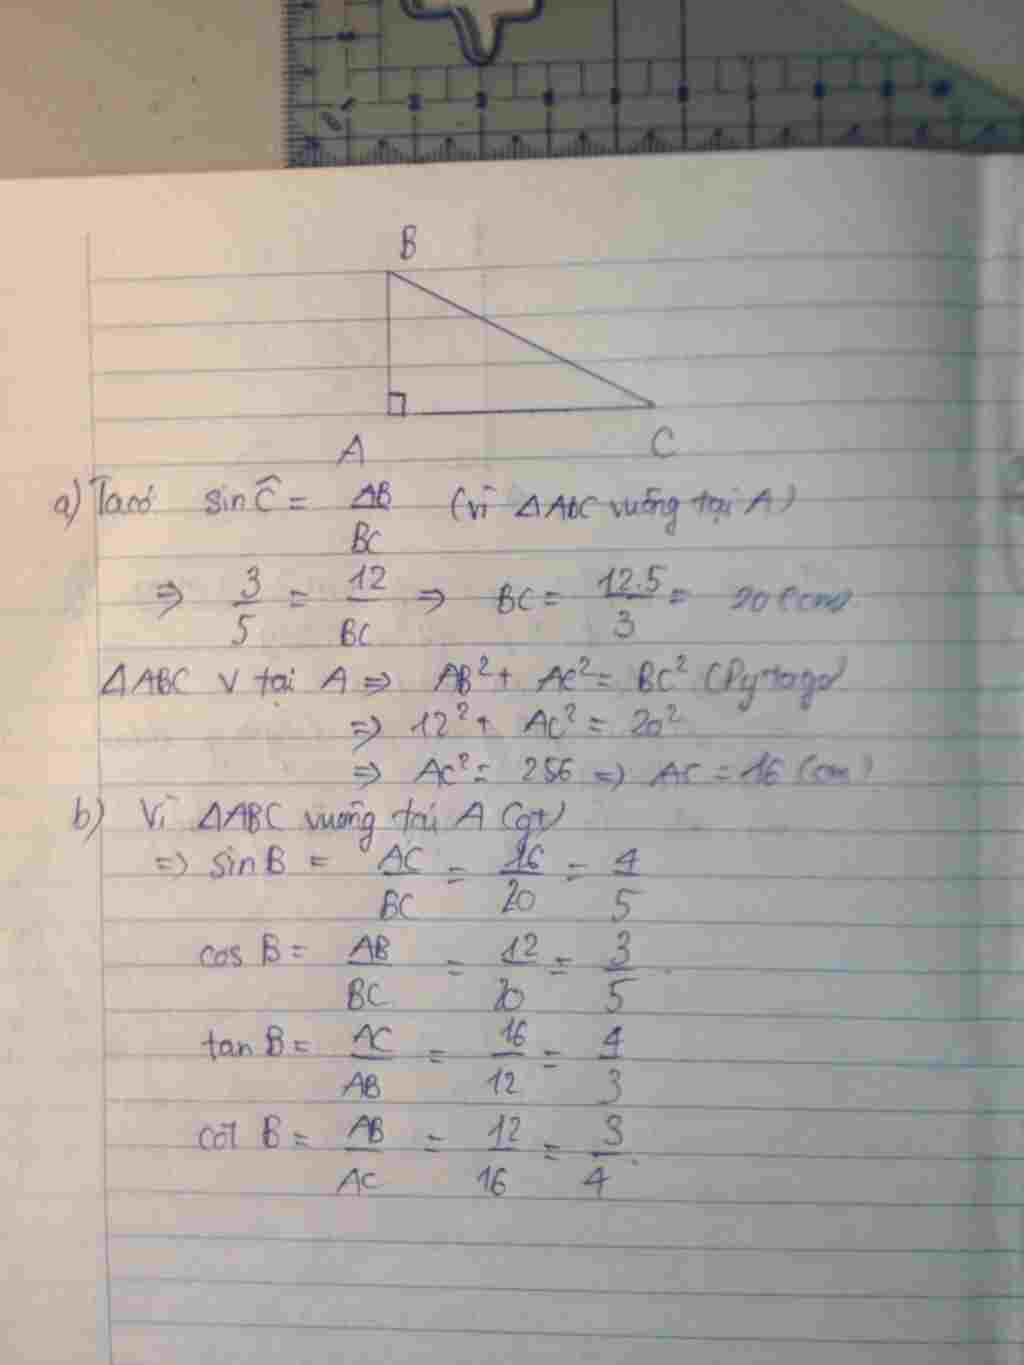 B
A C
a) Ta có sin Ĉ = AB/BC (vì ΔABC vuông tại A)
⇒ 3/5 = 12/BC ⇒ BC = 12.5/3 = 20 (cm)
ΔABC v tại A ⇒ AB² + AC² = BC² (Pytago)
⇒ 12² + AC² = 20²
⇒ AC² = 256 ⇒ AC = 16 (cm)
b) Vì ΔABC vuông tại A (gt)
⇒ sin B = AC/BC = 16/20 = 4/5
cos B = AB/BC = 12/20 = 3/5.
tan B = AC/AB = 16/12 = 4/3
cot B = AB/AC = 12/16 = 3/4.